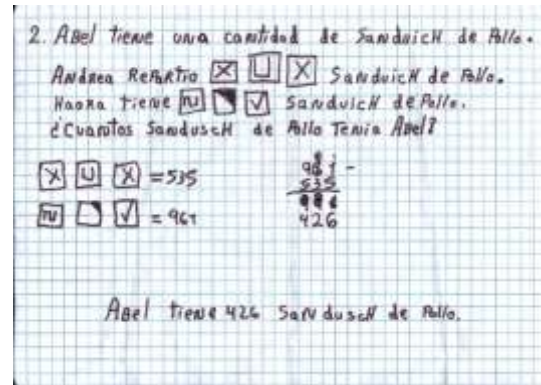 2. Abel tiene una cantidad de Sandwich de Pollo.
Andrea Repartio X U X Sandwich de Pollo.
tiene Sandwich de Pollo.
¿Cuantos Sandusch de Pollo Tenia Abel?
X U X = 535
= 961
961 -
535
426
Abel tiene 426 Sandusch de Pollo.